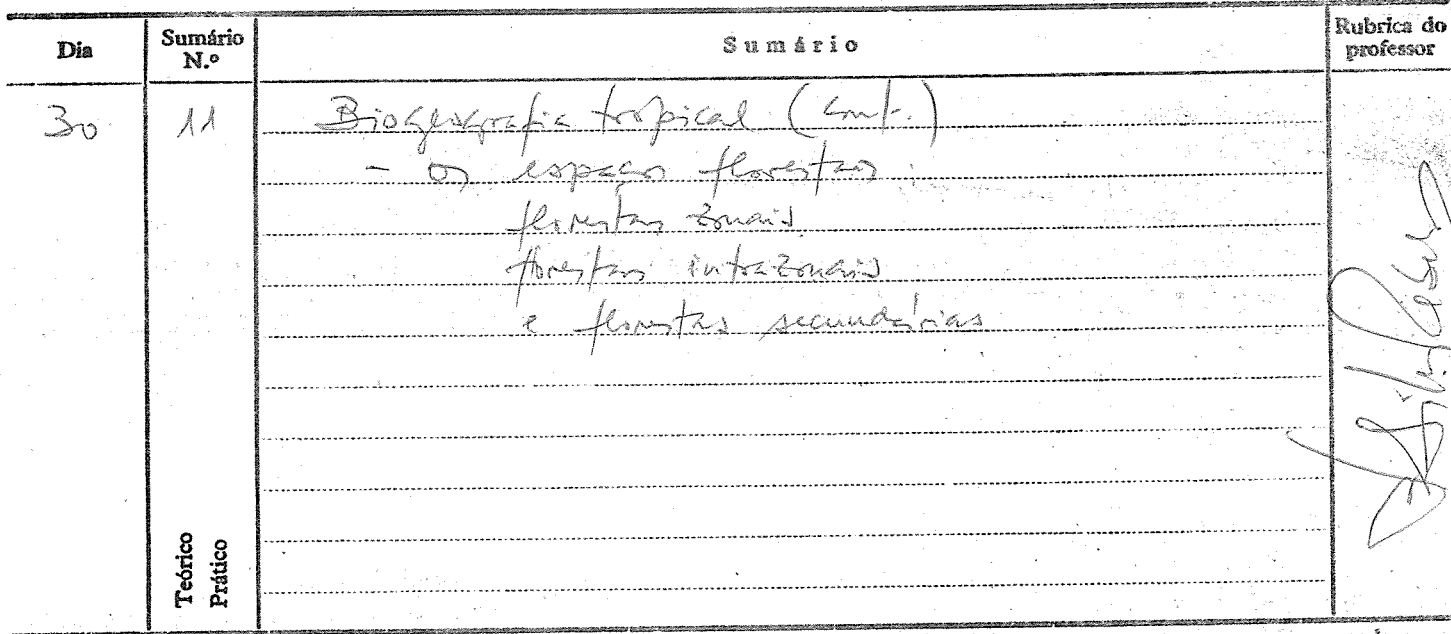 Dia Sumário N.º Sumário Rubrica do professor
30 11 Biogeografia tropical (cont.)
- os espaços florestais:
florestas zonais
florestas intrazonais
e florestas secundárias
Teórico
Prático